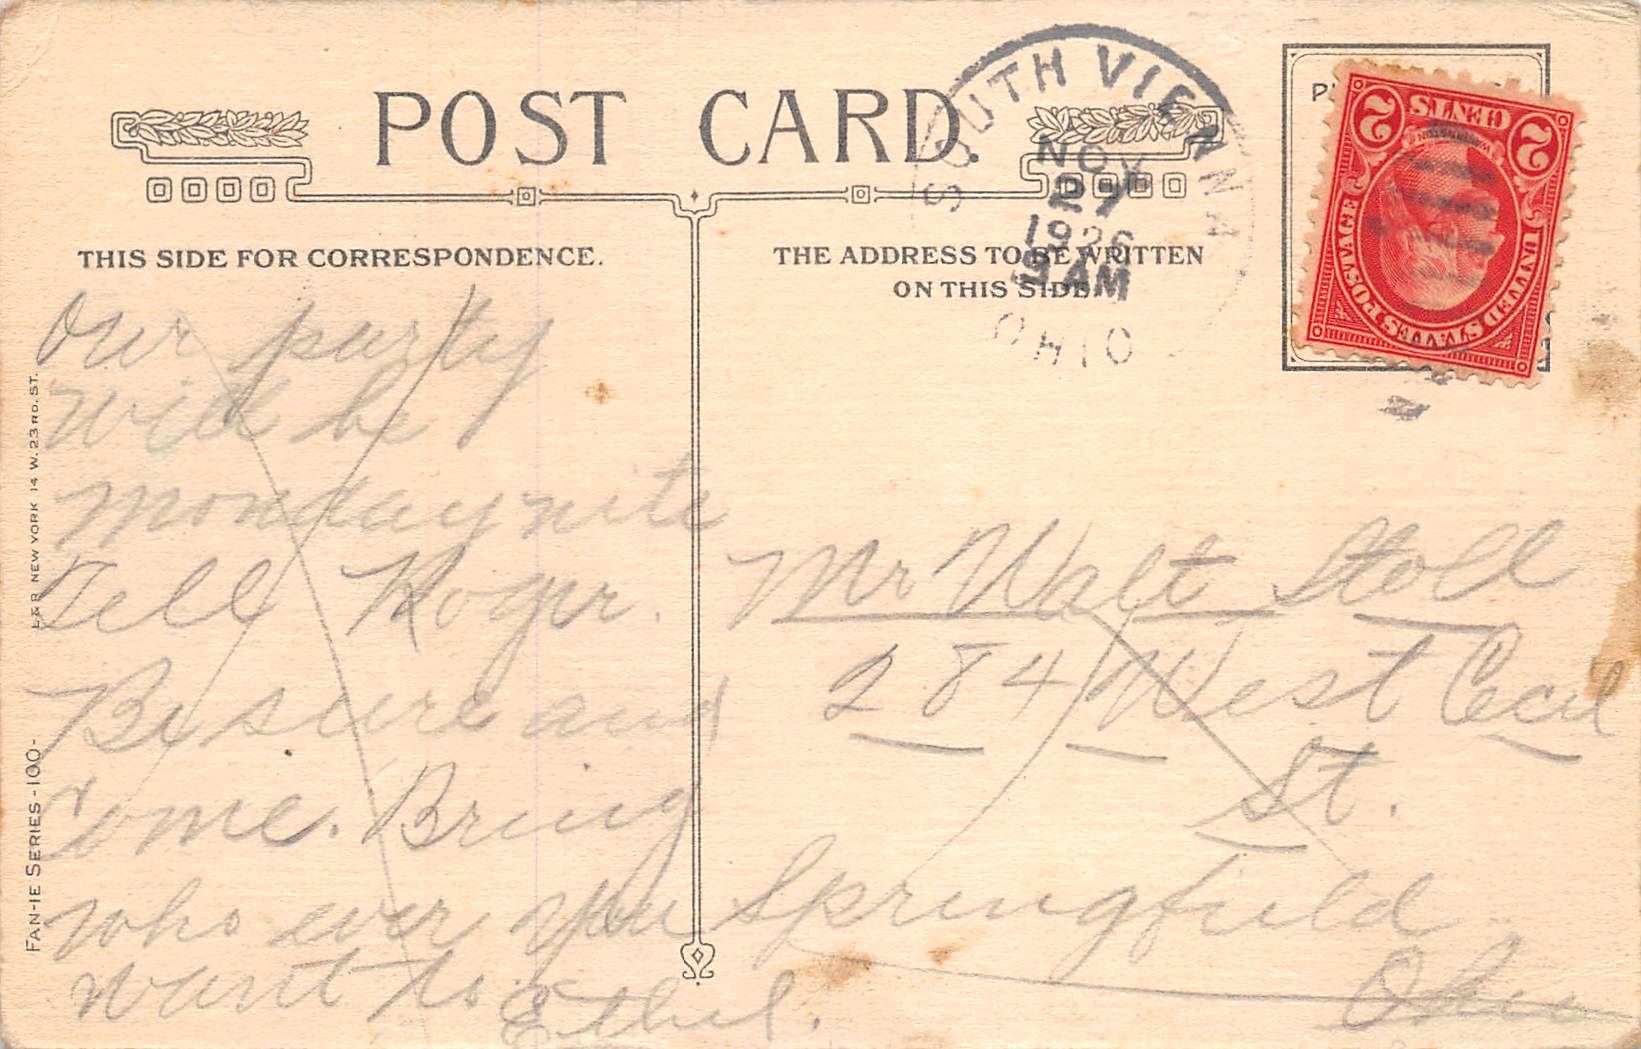 POST CARD.
THIS SIDE FOR CORRESPONDENCE.
THE ADDRESS TO BE WRITTEN
ON THIS SIDE
SOUTH VIENNA
NOV
27
1926
9 AM
OHIO
2 CENTS 2
WASHINGTON
UNITED STATES POSTAGE
Our party
Will be
monday nite
Tell Roger.
Be sure and
Come. Bring
who ever you
want to.
Ethel.
Mr Walt Stoll
284 West Cecil
St.
Springfield
Ohio
L&P NEW YORK 14 W. 23RD. ST.
FAN-IE SERIES - 100 -